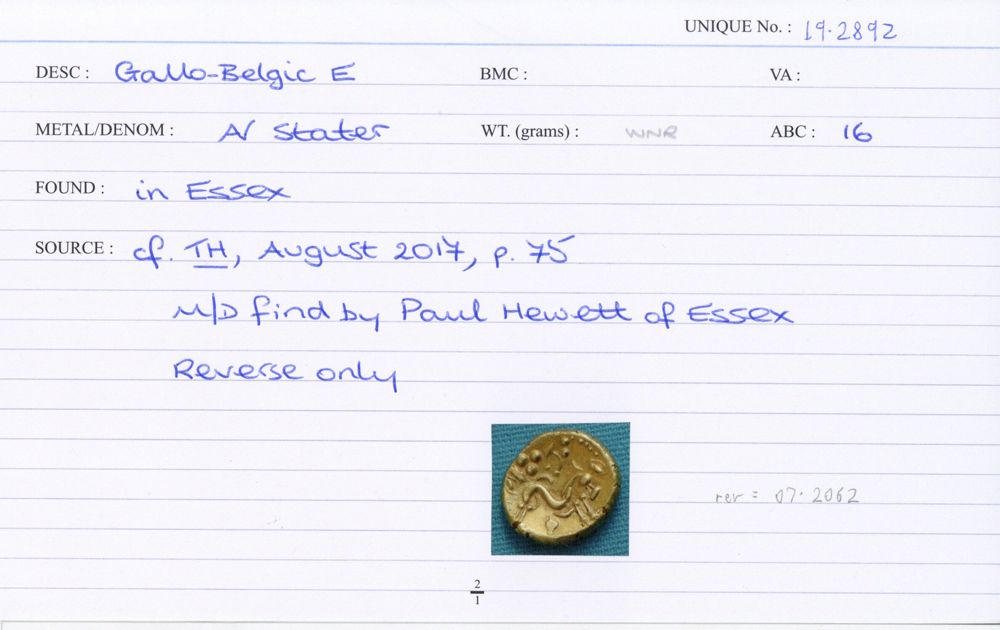 UNIQUE No. : 19.2892
DESC : Gallo-Belgic E BMC : VA :
METAL/DENOM : A/ Stater WT. (grams) : WNR ABC : 16
FOUND : in Essex
SOURCE : cf. TH, August 2017, p. 75
M/D find by Paul Hewett of Essex
Reverse only
rev = 07.2062
2
1